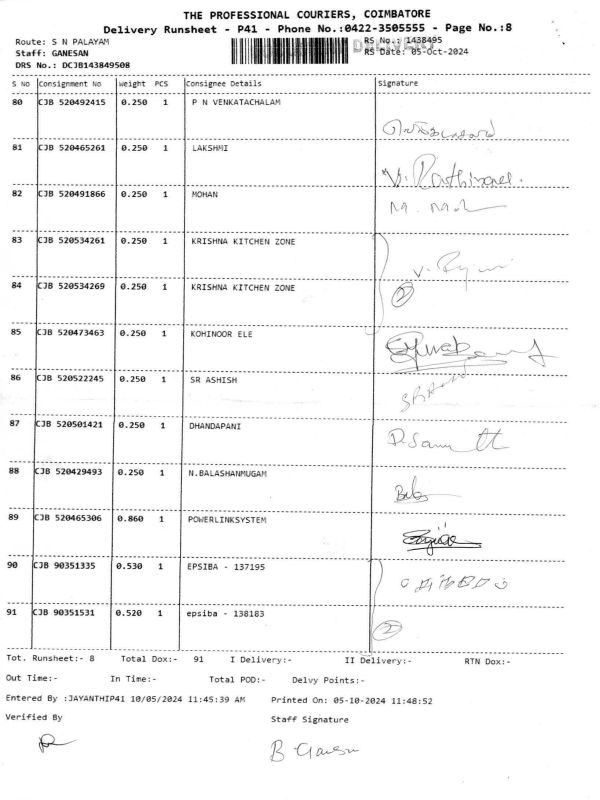 THE PROFESSIONAL COURIERS, COIMBATORE
Delivery Runsheet - P41 - Phone No.:0422-3505555 - Page No.:8
Route: S N PALAYAM DELIVERY RS No.: 1438495
Staff: GANESAN RS Date: 05-Oct-2024
DRS No.: DCJB143849508
S NO Consignment No Weight PCS Consignee Details Signature
80 CJB 520492415 0.250 1 P N VENKATACHALAM
81 CJB 520465261 0.250 1 LAKSHMI
82 CJB 520491866 0.250 1 MOHAN
83 CJB 520534261 0.250 1 KRISHNA KITCHEN ZONE
84 CJB 520534269 0.250 1 KRISHNA KITCHEN ZONE 2
85 CJB 520473463 0.250 1 KOHINOOR ELE
86 CJB 520522245 0.250 1 SR ASHISH
87 CJB 520501421 0.250 1 DHANDAPANI
88 CJB 520429493 0.250 1 N.BALASHANMUGAM
89 CJB 520465306 0.860 1 POWERLINKSYSTEM
90 CJB 90351335 0.530 1 EPSIBA - 137195
91 CJB 90351531 0.520 1 epsiba - 138183 2
Tot. Runsheet:- 8 Total Dox:- 91 I Delivery:- II Delivery:- RTN Dox:-
Out Time:- In Time:- Total POD:- Delvy Points:-
Entered By :JAYANTHIP41 10/05/2024 11:45:39 AM Printed On: 05-10-2024 11:48:52
Verified By Staff Signature